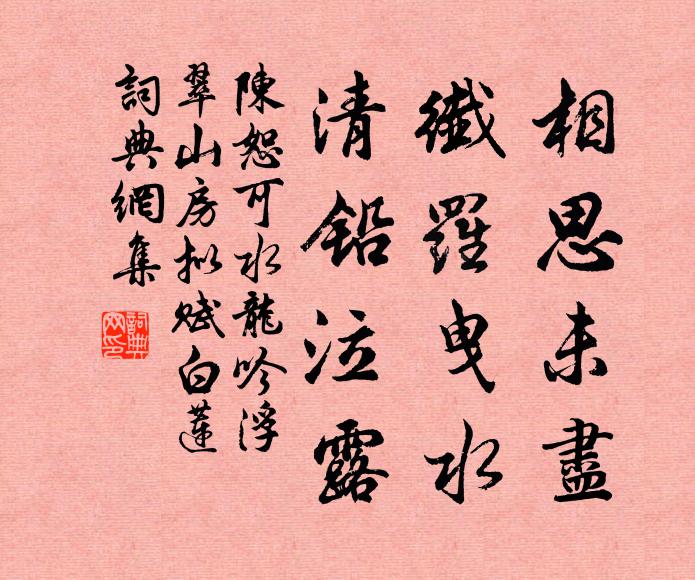 相思未盡
纖羅曳水
清鉛泣露
陳恕可水龍吟浮
翠山房拟賦白蓮
詞典網集
詞典网印